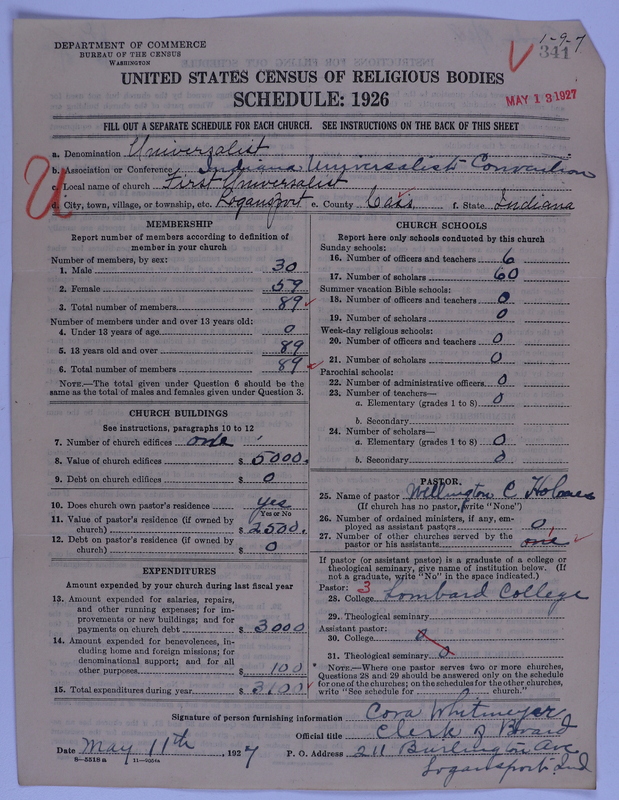 1-9-7
341
DEPARTMENT OF COMMERCE
BUREAU OF THE CENSUS
WASHINGTON
UNITED STATES CENSUS OF RELIGIOUS BODIES
SCHEDULE: 1926
MAY 13 1927
FILL OUT A SEPARATE SCHEDULE FOR EACH CHURCH. SEE INSTRUCTIONS ON THE BACK OF THIS SHEET
a. Denomination Universalist
b. Association or Conference Indiana Universalist Convention
c. Local name of church First Universalist
d. City, town, village, or township, etc. Logansport e. County Cass f. State Indiana
MEMBERSHIP
Report number of members according to definition of
member in your church
Number of members, by sex:
1. Male 30
2. Female 59
3. Total number of members 89
Number of members under and over 13 years old:
4. Under 13 years of age 0
5. 13 years old and over 89
6. Total number of members 89
NOTE.—The total given under Question 6 should be the
same as the total of males and females given under Question 3.
CHURCH BUILDINGS
See instructions, paragraphs 10 to 12
7. Number of church edifices one
8. Value of church edifices $ 5000.
9. Debt on church edifices $ 0
10. Does church own pastor's residence yes
Yes or No
11. Value of pastor's residence (if owned by
church) $ 2500.
12. Debt on pastor's residence (if owned by
church) $ 0
EXPENDITURES
Amount expended by your church during last fiscal year
13. Amount expended for salaries, repairs,
and other running expenses; for im-
provements or new buildings; and for
payments on church debt $ 3000
14. Amount expended for benevolences, in-
cluding home and foreign missions; for
denominational support; and for all
other purposes $ 100
15. Total expenditures during year $ 3100
CHURCH SCHOOLS
Report here only schools conducted by this church
Sunday schools:
16. Number of officers and teachers 6
17. Number of scholars 60
Summer vacation Bible schools:
18. Number of officers and teachers 0
19. Number of scholars 0
Week-day religious schools:
20. Number of officers and teachers 0
21. Number of scholars 0
Parochial schools:
22. Number of administrative officers 0
23. Number of teachers—
a. Elementary (grades 1 to 8) 0
b. Secondary
24. Number of scholars—
a. Elementary (grades 1 to 8) 0
b. Secondary 0
PASTOR
25. Name of pastor Wellington C Holmes
(If church has no pastor, write "None")
26. Number of ordained ministers, if any, em-
ployed as assistant pastors 0
27. Number of other churches served by the
pastor or his assistants one
If pastor (or assistant pastor) is a graduate of a college or
theological seminary, give name of institution below. (If
not a graduate, write "No" in the space indicated.)
Pastor: 3
28. College Lombard College
29. Theological seminary
Assistant pastor:
30. College 0
31. Theological seminary 0
* NOTE.—Where one pastor serves two or more churches,
Questions 28 and 29 should be answered only on the schedule
for one of the churches; on the schedules for the other churches,
write "See schedule for church."
Signature of person furnishing information Cora Whitmeyer
Official title Clerk of Board
Date May 11th, 1927 P. O. Address 211 Burlington Ave
Logansport Ind